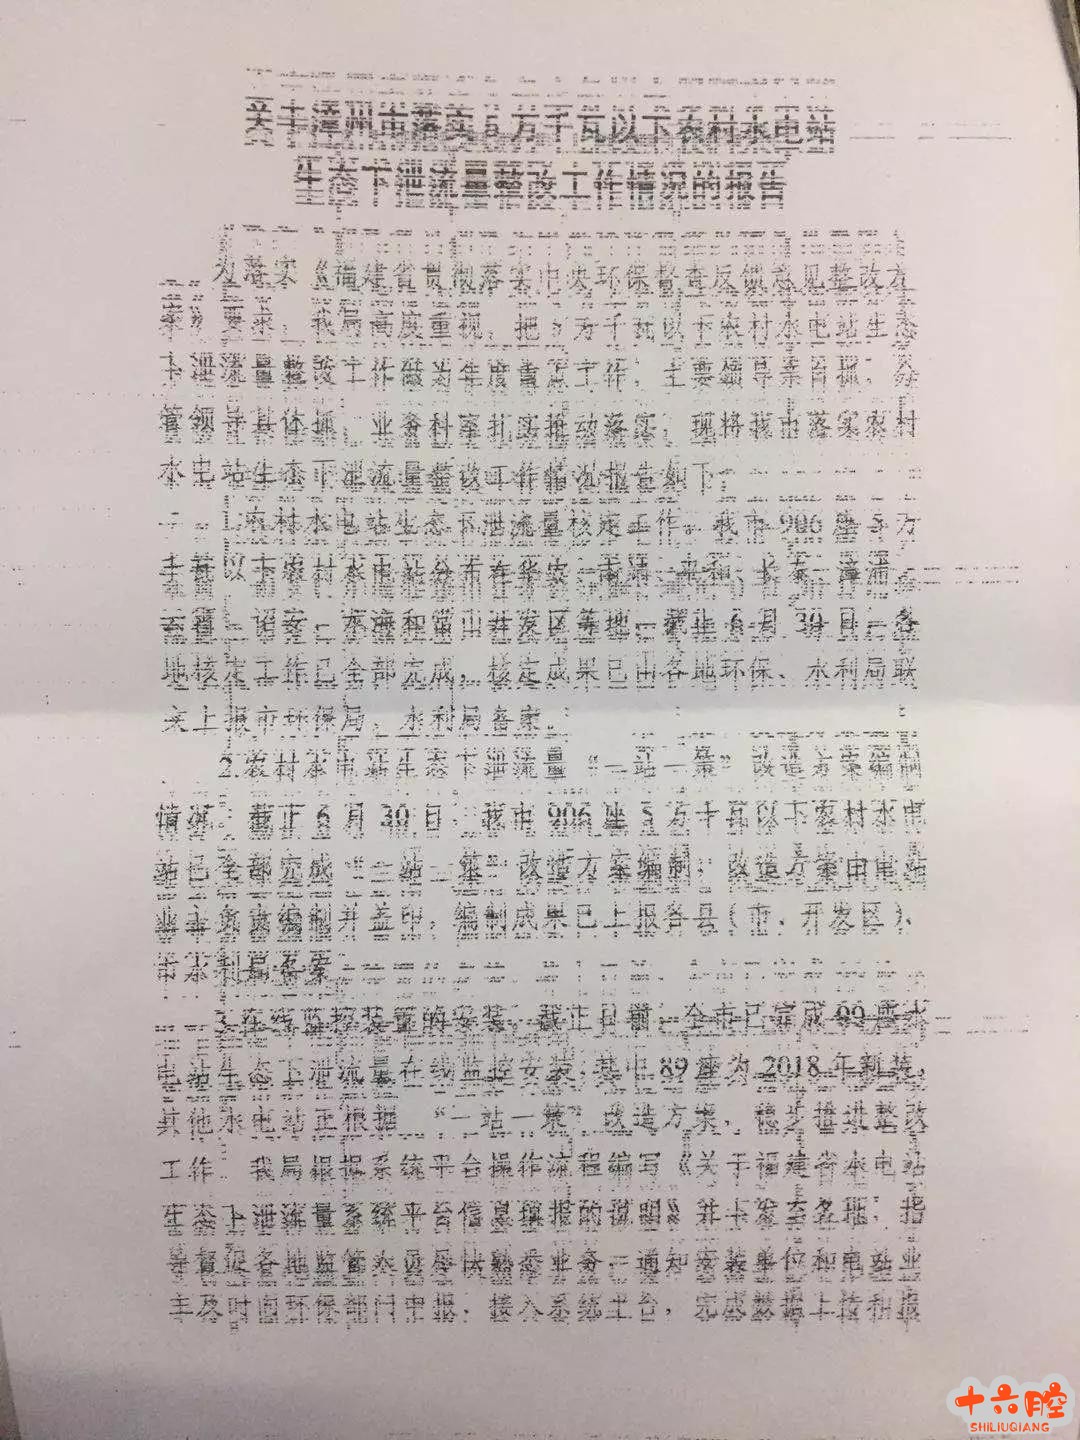 关于漳州市落实5万千瓦以下农村水电站
生态下泄流量整改工作情况的报告
为落实《福建省贯彻落实中央环保督查反馈意见整改方
案》要求，我局高度重视，把5万千瓦以下农村水电站生态
下泄流量整改工作做为年度重点工作，主要领导亲自抓，分
管领导具体抓，业务科室扎实推动落实，现将我市落实农村
水电站生态下泄流量整改工作情况报告如下：
1.农村水电站生态下泄流量核定工作。我市906座5万
千瓦以下农村水电站分布在华安、南靖、平和、长泰、漳浦、
云霄、诏安、龙海和常山开发区等地，截止6月30日，各
地核定工作已全部完成，核定成果已由各地环保、水利局联
文上报市环保局、水利局备案。
2.农村水电站生态下泄流量“一站一策”改造方案编制
情况。截止6月30日，我市906座5万千瓦以下农村水电
站已全部完成“一站一策”改造方案编制，改造方案由电站
业主负责编制并盖印，编制成果已上报各县（市、开发区）、
市水利局备案。
3.在线监控装置的安装。截止目前，全市已完成99座水
电站生态下泄流量在线监控安装，其中89座为2018年新装，
其他水电站正根据“一站一策”改造方案，稳步推进整改
工作。我局根据系统平台操作流程编写《关于福建省水电站
生态下泄流量系统平台信息填报的说明》并下发至各地，指
导督促各地监管人员尽快熟悉业务，通知安装单位和电站业
主及时向环保部门申报，接入系统平台，完成数据上传和报
十六腔
SHILIUQIANG